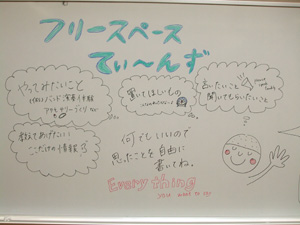 フリースペース
てぃ〜んず
やってみたいこと
置いてほしいもの
言いたいこと
聞いてもらいたいこと
教えてあげたい
ここだけの情報
何でもいいので
思ったことを自由に
書いてね。
Every thing
you want to say